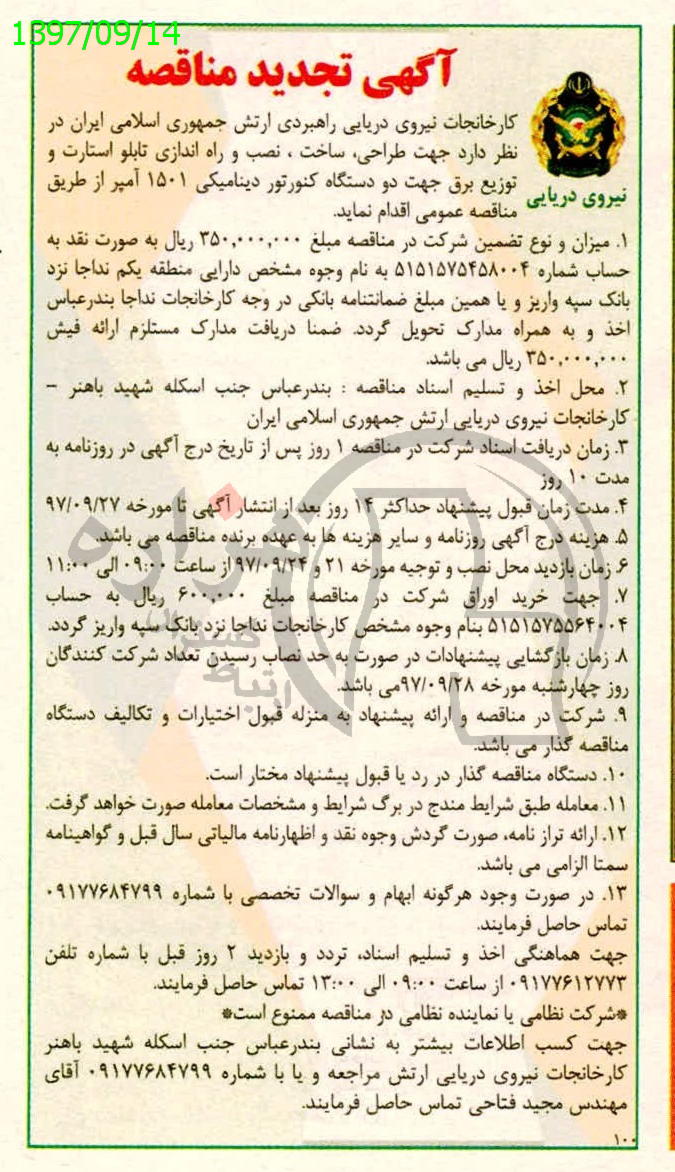 1397/09/14
آگهی تجدید مناقصه
نیروی دریایی
کارخانجات نیروی دریایی راهبردی ارتش جمهوری اسلامی ایران در
نظر دارد جهت طراحی، ساخت ، نصب و راه اندازی تابلو استارت و
توزیع برق جهت دو دستگاه کنورتور دینامیکی ۱۵۰۱ آمپر از طریق
مناقصه عمومی اقدام نماید.
۱. میزان و نوع تضمین شرکت در مناقصه مبلغ ۳۵۰,۰۰۰,۰۰۰ ریال به صورت نقد به
حساب شماره ۵۱۵۱۵۷۵۴۵۸۰۰۴ به نام وجوه مشخص دارایی منطقه یکم نداجا نزد
بانک سپه واریز و یا همین مبلغ ضمانتنامه بانکی در وجه کارخانجات نداجا بندرعباس
اخذ و به همراه مدارک تحویل گردد. ضمنا دریافت مدارک مستلزم ارائه فیش
۳۵۰,۰۰۰,۰۰۰ ریال می باشد.
۲. محل اخذ و تسلیم اسناد مناقصه : بندرعباس جنب اسکله شهید باهنر –
کارخانجات نیروی دریایی ارتش جمهوری اسلامی ایران
۳. زمان دریافت اسناد شرکت در مناقصه ۱ روز پس از تاریخ درج آگهی در روزنامه به
مدت ۱۰ روز
۴. مدت زمان قبول پیشنهاد حداکثر ۱۴ روز بعد از انتشار آگهی تا مورخه ۹۷/۰۹/۲۷
۵. هزینه درج آگهی روزنامه و سایر هزینه ها به عهده برنده مناقصه می باشد.
۶. زمان بازدید محل نصب و توجیه مورخه ۲۱ و ۹۷/۰۹/۲۴ از ساعت ۰۹:۰۰ الی ۱۱:۰۰
۷. جهت خرید اوراق شرکت در مناقصه مبلغ ۶۰۰,۰۰۰ ریال به حساب
۵۱۵۱۵۷۵۵۶۴۰۰۴ بنام وجوه مشخص کارخانجات نداجا نزد بانک سپه واریز گردد.
۸. زمان بازگشایی پیشنهادات در صورت به حد نصاب رسیدن تعداد شرکت کنندگان
روز چهارشنبه مورخه ۹۷/۰۹/۲۸می باشد.
۹. شرکت در مناقصه و ارائه پیشنهاد به منزله قبول اختیارات و تکالیف دستگاه
مناقصه گذار می باشد.
۱۰. دستگاه مناقصه گذار در رد یا قبول پیشنهاد مختار است.
۱۱. معامله طبق شرایط مندج در برگ شرایط و مشخصات معامله صورت خواهد گرفت.
۱۲. ارائه تراز نامه، صورت گردش وجوه نقد و اظهارنامه مالیاتی سال قبل و گواهینامه
سمتا الزامی می باشد.
۱۳. در صورت وجود هرگونه ابهام و سوالات تخصصی با شماره ۰۹۱۷۷۶۸۴۷۹۹
تماس حاصل فرمایند.
جهت هماهنگی اخذ و تسلیم اسناد، تردد و بازدید ۲ روز قبل با شماره تلفن
۰۹۱۷۷۶۱۲۷۷۳ از ساعت ۰۹:۰۰ الی ۱۳:۰۰ تماس حاصل فرمایند.
*شرکت نظامی یا نماینده نظامی در مناقصه ممنوع است*
جهت کسب اطلاعات بیشتر به نشانی بندرعباس جنب اسکله شهید باهنر
کارخانجات نیروی دریایی ارتش مراجعه و یا با شماره ۰۹۱۷۷۶۸۴۷۹۹ آقای
مهندس مجید فتاحی تماس حاصل فرمایند.
۱۰۰
هزاره
ارتباط